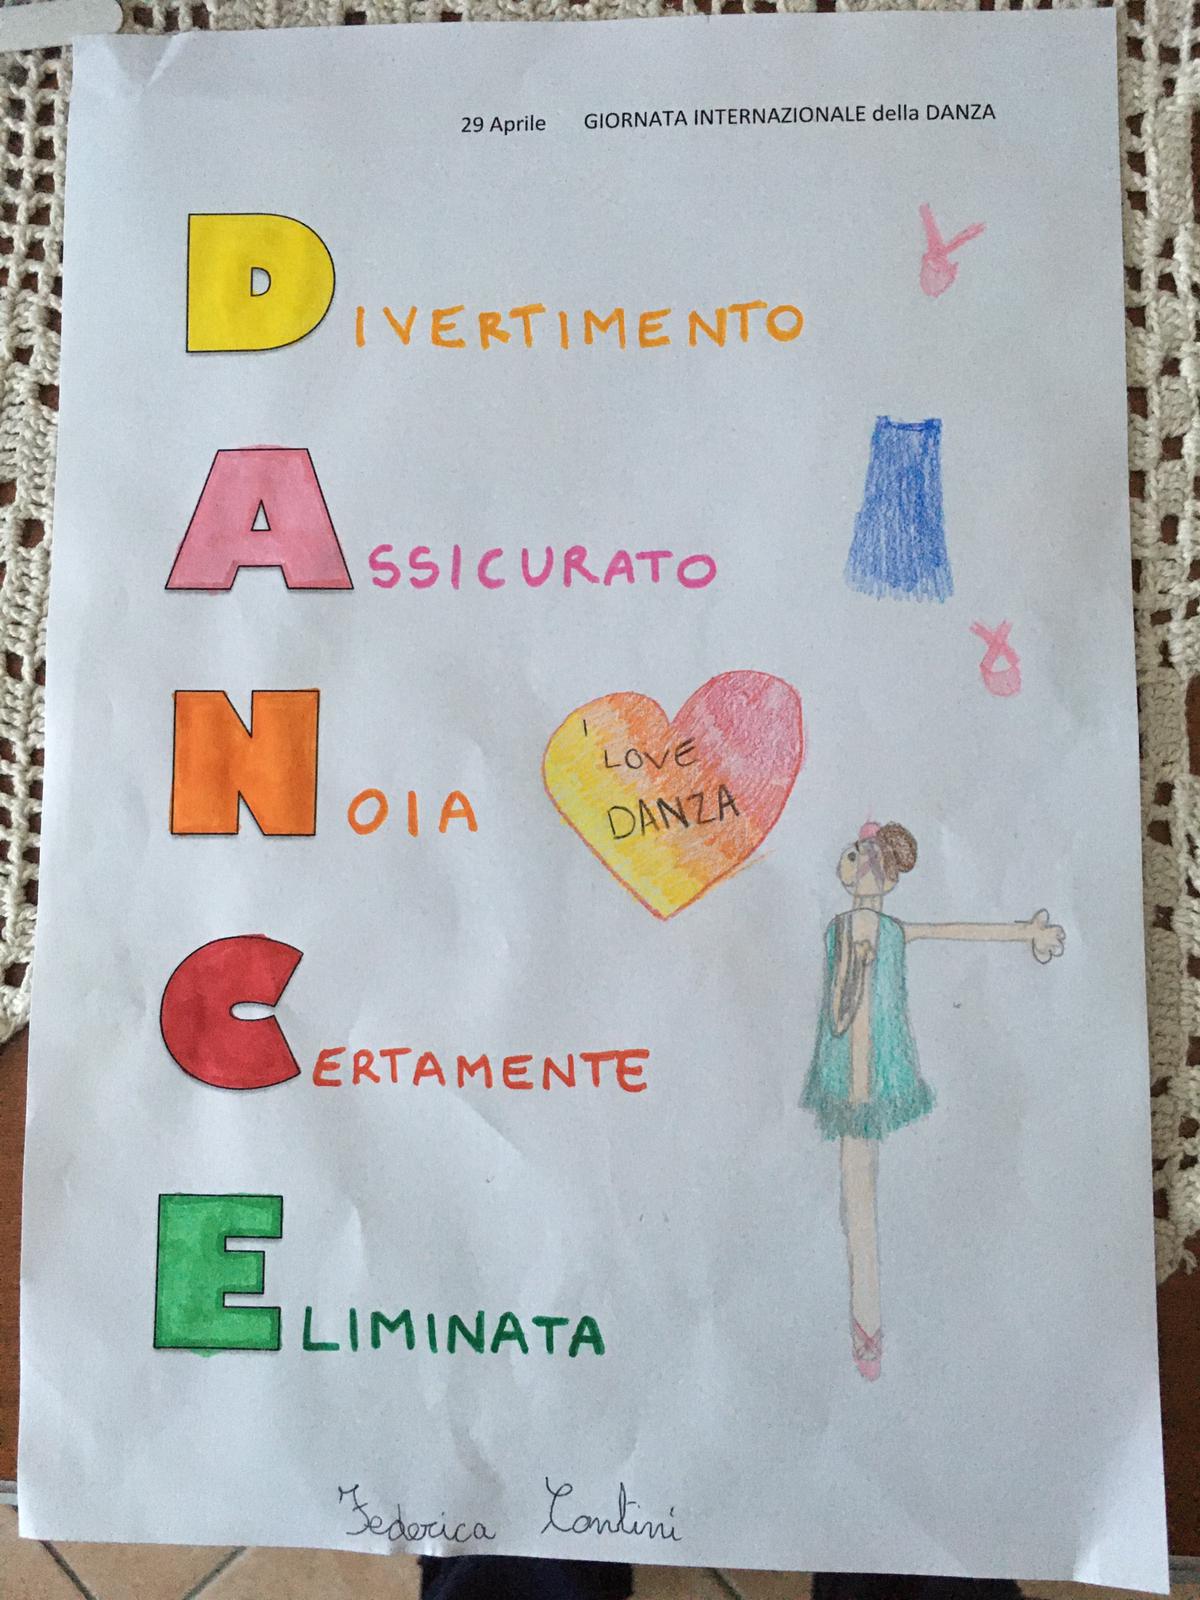 29 Aprile GIORNATA INTERNAZIONALE della DANZA
DIVERTIMENTO
ASSICURATO
NOIA
I
LOVE
DANZA
CERTAMENTE
ELIMINATA
Federica Contini